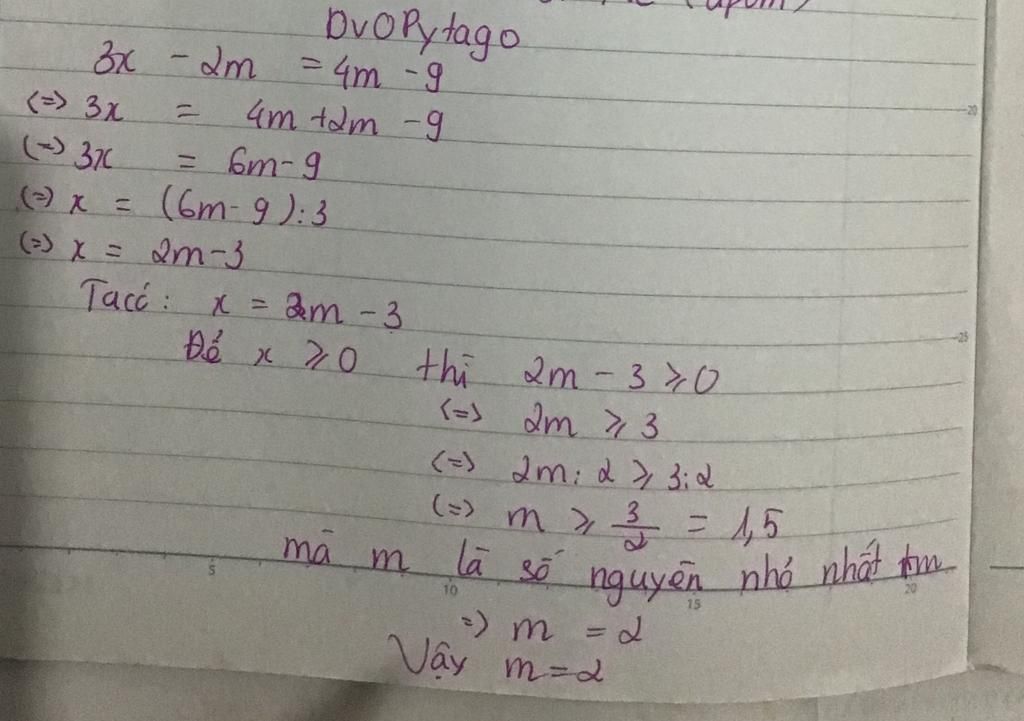 DVOPytago
3x - 2m = 4m - 9
(=> 3x = 4m + 2m - 9
(=> 3x = 6m - 9
(=> x = (6m - 9) : 3
(=> x = 2m - 3
Ta có : x = 2m - 3
Để x ⩾ 0 thì 2m - 3 ⩾ 0
(=> 2m ⩾ 3
(=> 2m : 2 ⩾ 3 : 2
(=> m ⩾ 3/2 = 1,5
mà m là số nguyên nhỏ nhất tm
=> m = 2
Vậy m = 2
20
25
5 10 15 20